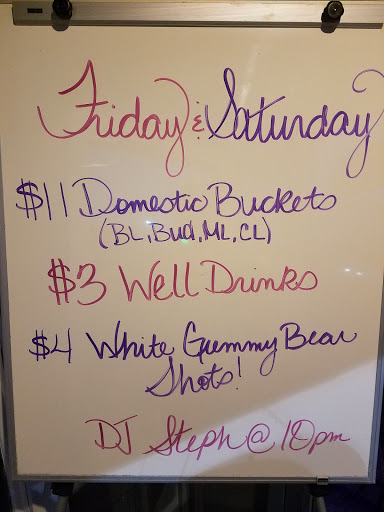 Friday & Saturday
$11 Domestic Buckets
(BL, Bud, ML, CL)
$3 Well Drinks
$4 White Gummy Bear
Shots!
DJ Steph @ 10pm